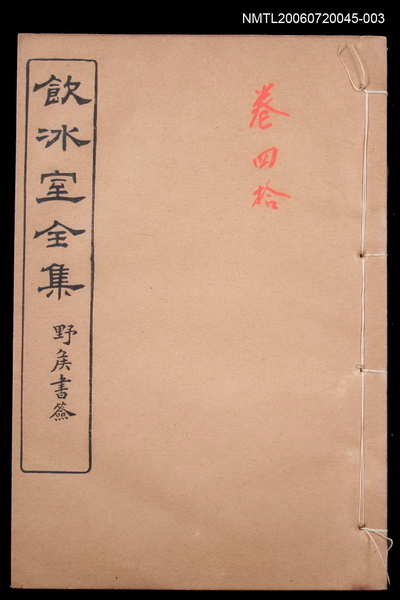 NMTL20060720045-003
卷四拾
飲冰室全集
野矦書簽